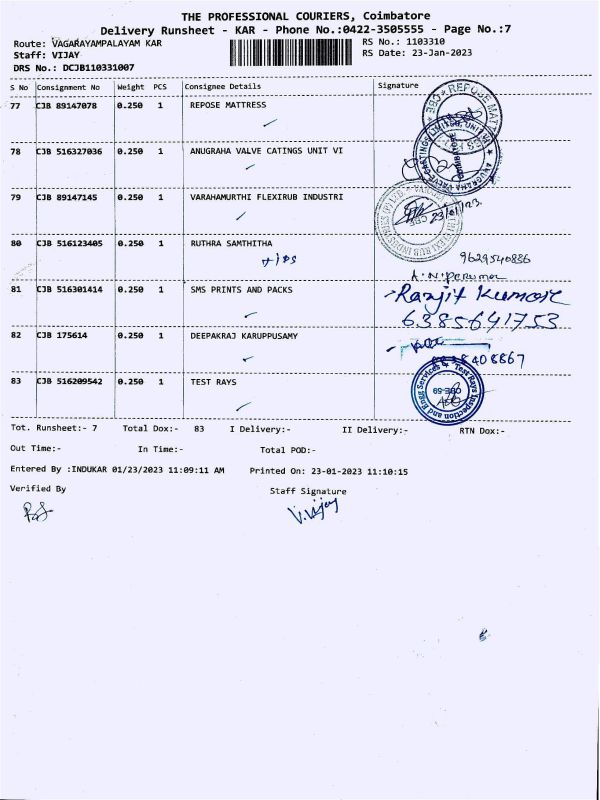 THE PROFESSIONAL COURIERS, Coimbatore
Delivery Runsheet - KAR - Phone No.:0422-3505555 - Page No.:7
Route: VAGARAYAMPALAYAM KAR
RS No.: 1103310
Staff: VIJAY
RS Date: 23-Jan-2023
DRS No.: DCJB110331007
S No Consignment No Weight PCS Consignee Details Signature
77 CJB 89147078 0.250 1 REPOSE MATTRESS
78 CJB 516327036 0.250 1 ANUGRAHA VALVE CATINGS UNIT VI
79 CJB 89147145 0.250 1 VARAHAMURTHI FLEXIRUB INDUSTRI
23/01/23
80 CJB 516123405 0.250 1 RUTHRA SAMTHITHA
9629540886
A.N.Perumal
81 CJB 516301414 0.250 1 SMS PRINTS AND PACKS
Ranjit Kumar
6385641753
82 CJB 175614 0.250 1 DEEPAKRAJ KARUPPUSAMY
408867
83 CJB 516209542 0.250 1 TEST RAYS
Test Rays Inspection and Engg Services
CBE-59
Tot. Runsheet:- 7 Total Dox:- 83 I Delivery:- II Delivery:- RTN Dox:-
Out Time:- In Time:- Total POD:-
Entered By :INDUKAR 01/23/2023 11:09:11 AM Printed On: 23-01-2023 11:10:15
Verified By Staff Signature
V.Vijay